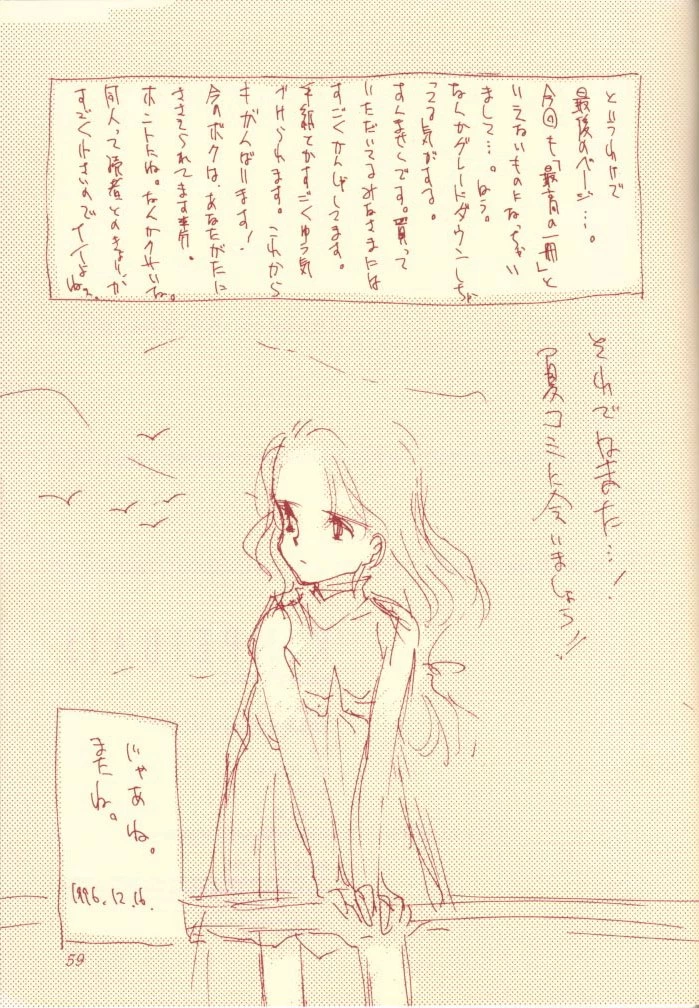 というわけで
最後のページ…。
今回も「最高の一冊」と
いえないものになっちゃい
まして…。はう。
なんかグレードダウンしちゃ
ってる気がする。
すんませんです。買って
いただいてるみなさまには
すごくかんしゃしてます。
手紙でかすごくゆう気
づけられます。これから
もがんばります!
今のボクは、あなたがたに
ささえられてます
ホントにね。なんかクサいな。
同人って読者とのきょりが
すごく小さいのでイイよねぇ。
それではまた…!
夏コミに会いましょう!!
じゃあね。
またね。
1996.12.16.
59